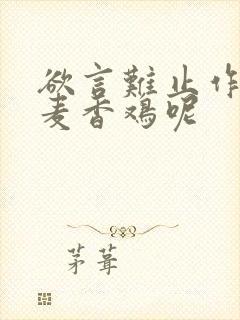 欲言難止作
麦香鸡呢
茅葺